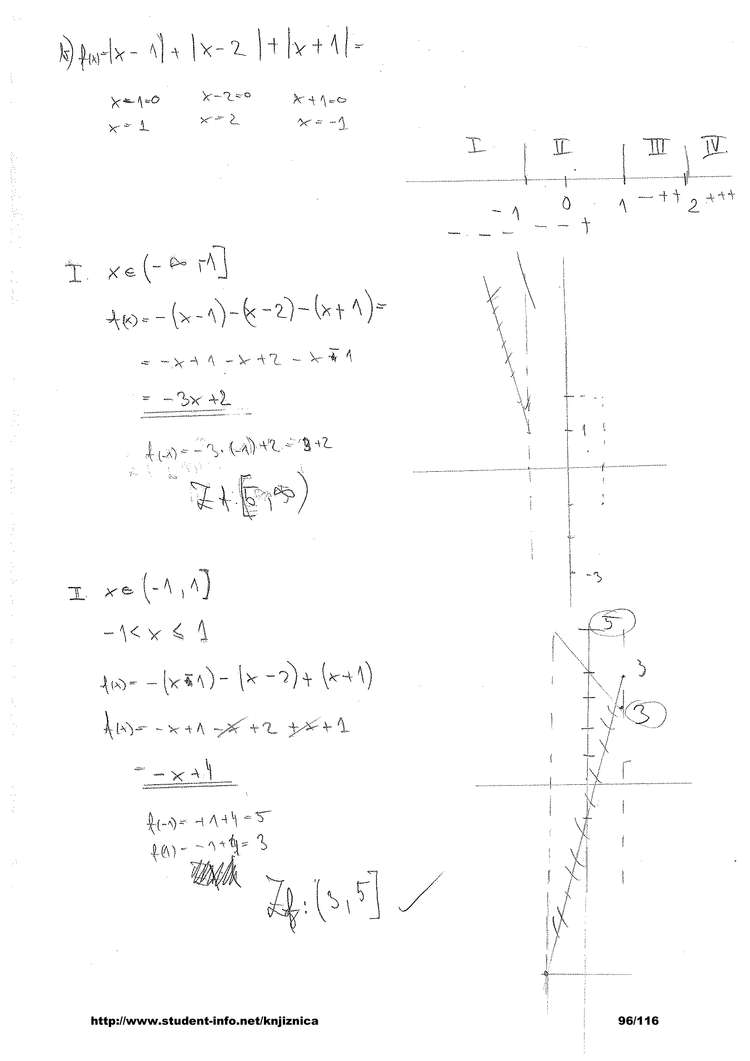 b) f(x)=|x-1|+|x-2|+|x+1|=
x-1=0 x-2=0 x+1=0
x=1 x=2 x=-1
I II III IV
-1 0 1 -++ 2 +++
--- --+
I. x∈(-∞,-1]
f(x)=-(x-1)-(x-2)-(x+1)=
=-x+1-x+2-x-1
=-3x+2
f(-1)=-3·(-1)+2=3+2
Zf:[5,∞)
1
-3
II x∈(-1,1]
-1<x≤1
f(x)=-(x-1)-(x-2)+(x+1)
f(x)=-x+1-x+2+x+1
=-x+4
f(-1)=+1+4=5
f(1)=-1+4=3
Zf:(3,5] ✓
5
3
3
http://www.student-info.net/knjiznica 96/116